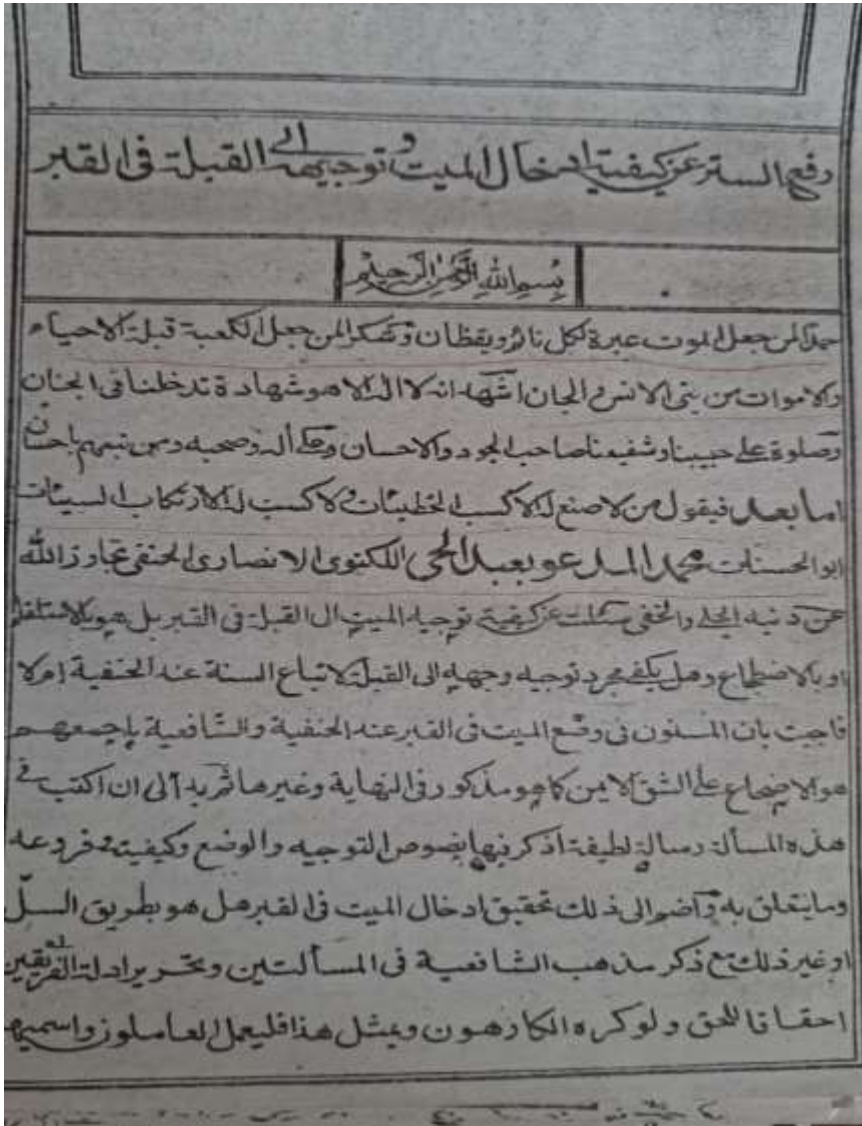 رفع الستر عن كيفية ادخال الميت و توجيهه الى القبلة فى القبر
بسم الله الرحمن الرحيم
حمدا لمن جعل الموت عبرة لكل نائم ويقظان وشكرا لمن جعل الكعبة قبلة الاحياء
والاموات من بنى الانس و الجان اشهد انه لا اله الا هو شهادة تدخلنا فى الجنان
وصلوة على حبيبنا وشفيعنا صاحب الجود والاحسان وعلى أله وصحبه ومن تبعهم باحسان
اما بعد فيقول من لا صنع له الا كسب الخطيئات ولا كسب له الا ارتكاب السيئات
ابو الحسنات محمد المدعو بعبد الحى اللكنوى الانصارى الحنفى تجاوز الله
عن ذنبه الجلى والخفى سئلت عن كيفية توجيه الميت الى القبلة فى القبر هل هو بالاستلقاء
او بالاضطجاع وهل يكفى مجرد توجيه وجهه الى القبلة لاتباع السنة عند الحنفية ام لا
فاجبت بان المسنون فى وضع الميت فى القبر عند الحنفية والشافعية باجمعهم
هو الاضجاع على الشق الايمن كما هو مذكور فى النهاية وغيرها ثم بدا لى ان اكتب فى
هذه المسألة رسالة لطيفة اذكر فيها نصوص التوجيه والوضع وكيفيته وفروعه
وما يتعلق به واضم الى ذلك تحقيق ادخال الميت فى القبر هل هو بطريق السل
او غير ذلك مع ذكر مذهب الشافعية فى المسألتين وتحرير ادلة الفريقين
احقاقا للحق ولو كره الكارهون وبمثل هذا فليعمل العاملون واسميها